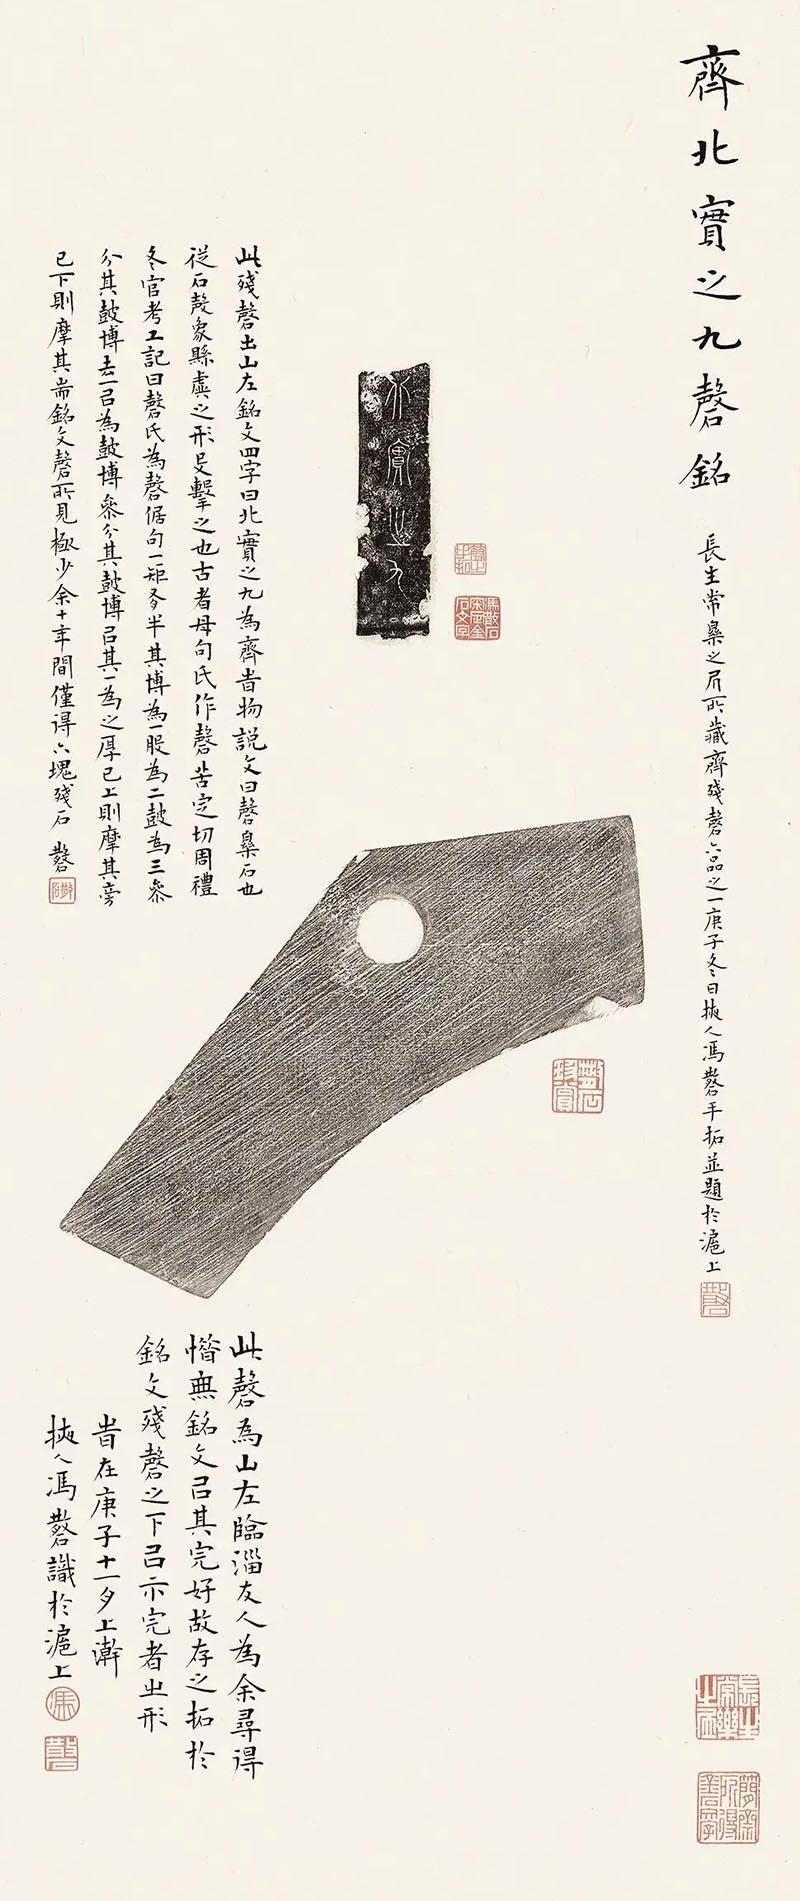 齊北實之九磬銘
長生常樂之居所藏齊殘磬六品之一庚子冬日掖人馮磬手拓並題於滬上
北實之九
此殘磬出山左銘文四字曰北實之九為齊旹物説文曰磬樂石也
從石殸象縣虡之形殳擊之也古者母句氏作磬苦定切周禮
冬官考工記曰磬氏為磬倨句一矩有半其博為一股為二鼓為三叅
分其鼓博去一㠯為鼓博叅分其鼓博㠯其一為之厚已上則摩其旁
已下則摩其耑銘文磬所見極少余十年間僅得六塊殘石 磬
此磬為山左臨淄友人為余尋得
惜無銘文㠯其完好故存之拓於
銘文殘磬之下㠯示完者之形
旹在庚子十一月上澣
掖人馮磬識於滬上